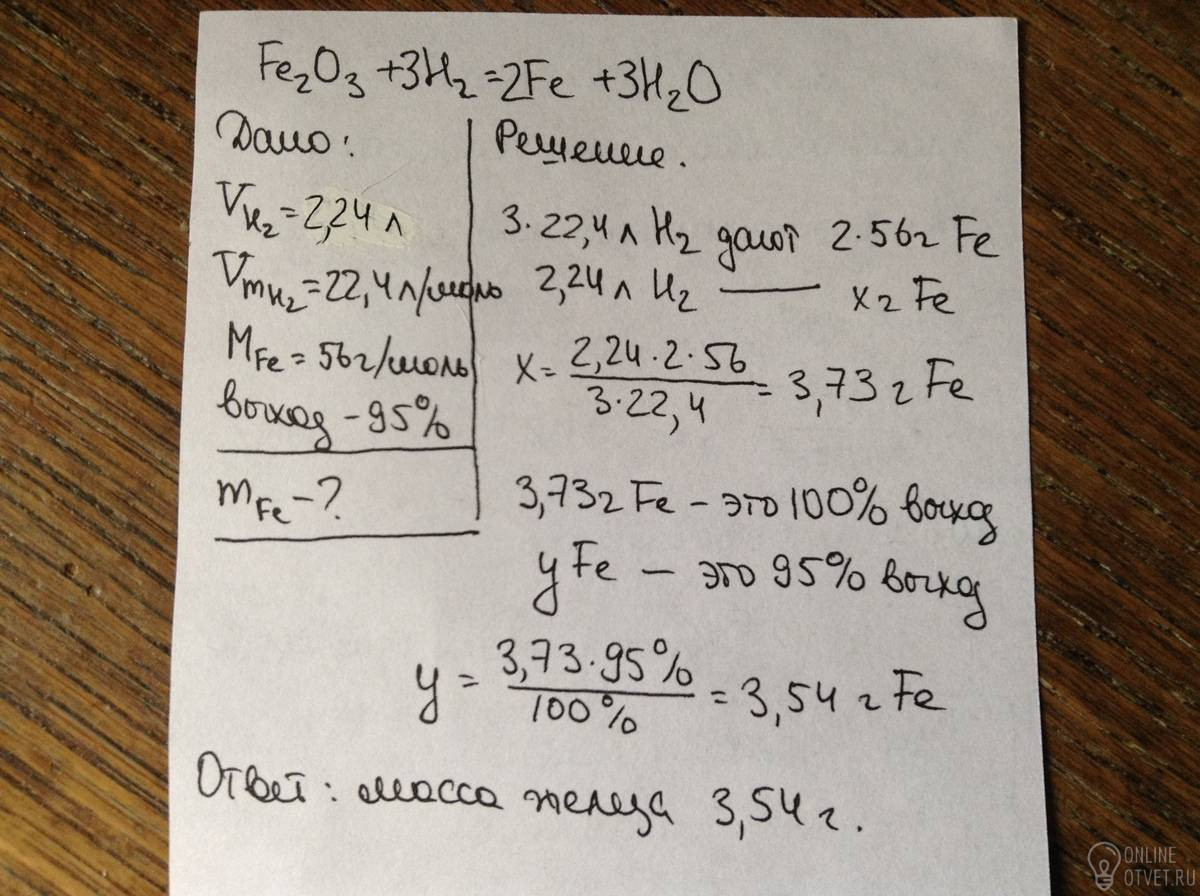 Fe₂O₃ +3H₂ =2Fe +3H₂O
Дано:
V_H₂ = 2,24 л
V_mH₂ = 22,4 л/моль
M_Fe = 56 г/моль
выход - 95%
m_Fe - ?
Решение.
3·22,4 л H₂ дают 2·56 г Fe
2,24 л H₂ — x г Fe
x = 2,24·2·56 / 3·22,4 = 3,73 г Fe
3,73 г Fe – это 100% выход
y Fe — это 95% выход
y = 3,73·95% / 100% = 3,54 г Fe
Ответ: масса железа 3,54 г.
ONLINE
OTVET.RU